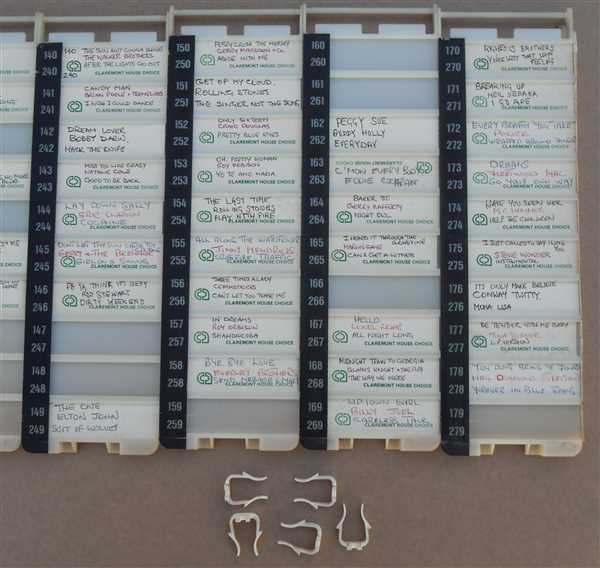 140
240
THE SUN AINT GONNA SHINE
THE WALKER BROTHERS
AFTER THE LIGHTS GO OUT
CLAREMONT HOUSE CHOICE
141
241
CANDY MAN
BRIAN POOLE & TREMELOES
I WISH I COULD DANCE
CLAREMONT HOUSE CHOICE
142
242
DREAM LOVER
BOBBY DARIN
MACK THE KNIFE
143
243
MISS YOU LIKE CRAZY
NATALIE COLE
GOOD TO BE BACK
CLAREMONT HOUSE CHOICE
144
244
LAY DOWN SALLY
ERIC CLAPTON
COCAINE
CLAREMONT HOUSE CHOICE
145
245
DON'T LET THE SUN CATCH YOU
GERRY & THE
CLAREMONT HOUSE CHOICE
146
246
DA YA THINK I'M SEXY
ROD STEWART
DIRTY WEEKEND
CLAREMONT HOUSE CHOICE
147
247
148
248
149
249
THE ONE
ELTON JOHN
SUIT OF WOLVES
150
250
FERRY CROSS THE MERSEY
GERRY
ABIDE WITH ME
CLAREMONT HOUSE CHOICE
151
251
GET OF MY CLOUD
ROLLING STONES
THE SINGER NOT THE SONG
152
252
ONLY SIXTEEN
CRAIG DOUGLAS
PRETTY BLUE EYES
CLAREMONT HOUSE CHOICE
153
253
OH, PRETTY WOMAN
ROY ORBISON
YO TE AMO MARIA
CLAREMONT HOUSE CHOICE
154
254
THE LAST TIME
ROLLING STONES
PLAY WITH FIRE
CLAREMONT HOUSE CHOICE
155
255
ALL ALONG THE WATCHTOWER
JIMMY HENDRIX
CROSSTOWN TRAFFIC
CLAREMONT HOUSE CHOICE
156
256
THREE TIMES A LADY
COMMODORES
CAN'T LET YOU TEASE ME
CLAREMONT HOUSE CHOICE
157
257
IN DREAMS
ROY ORBISON
SHAHDAROBA
CLAREMONT HOUSE CHOICE
158
258
BYE BYE LOVE
EVERLEY BROTHERS
CLAREMONT HOUSE CHOICE
159
259
160
260
161
261
162
262
PEGGY SUE
BUDDY HOLLY
EVERYDAY
163
263
C'MON EVERYBODY
EDDIE COCHRANE
164
264
BAKER ST
GERRY RAFFERTY
NIGHT OWL
CLAREMONT HOUSE CHOICE
165
265
I HEARD IT THROUGH THE
GRAPEVINE
MARVIN GAYE
CAN I GET A WITNESS
CLAREMONT HOUSE CHOICE
166
266
167
267
HELLO
LIONEL RICHIE
ALL NIGHT LONG
CLAREMONT HOUSE CHOICE
168
268
MIDNIGHT TRAIN TO GEORGIA
GLADYS KNIGHT & THE PIPS
THE WAY WE WERE
CLAREMONT HOUSE CHOICE
169
269
UP TOWN GIRL
BILLY JOEL
CARELESS TALK
CLAREMONT HOUSE CHOICE
170
270
BROTHERS
CLAREMONT HOUSE CHOICE
171
271
BREAKING UP
NEIL SEDAKA
CLAREMONT HOUSE CHOICE
172
272
EVERY BREATH YOU TAKE
POLICE
WRAPPED AROUND
CLAREMONT HOUSE CHOICE
173
273
DREAMS
FLEETWOOD MAC
GO YOUR OWN WAY
CLAREMONT HOUSE CHOICE
174
274
HAVE YOU SEEN HER
MC HAMMER
HELP THE CHILDREN
CLAREMONT HOUSE CHOICE
175
275
I JUST CALLED TO SAY I LOVE
STEVIE WONDER
INSTRUMENTAL
CLAREMONT HOUSE CHOICE
176
276
IT'S ONLY MAKE BELIEVE
CONWAY TWITTY
MONA LISA
177
277
BE TENDER WITH ME BABY
TINA TURNER
LIVE VERSION
CLAREMONT HOUSE CHOICE
178
278
YOU DON'T BRING ME FLOWERS
NEIL DIAMOND
FOREVER IN BLUE JEANS
179
279